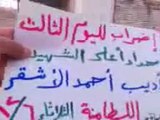 إضراب لليوم الثالث
حداد أعلى الشهيد
أديب أحمد الأشقر
اللطامنة الثلاثاء